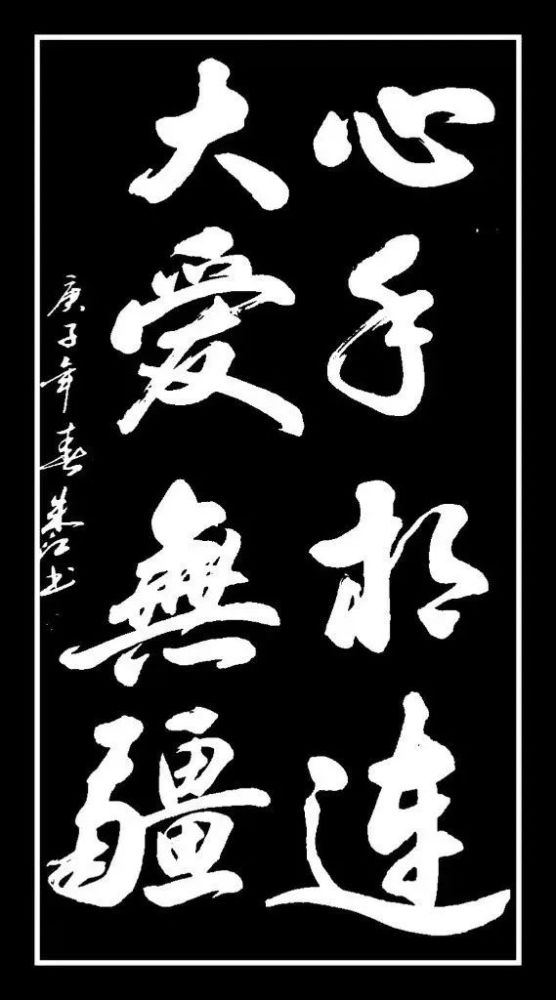 心手相连
大爱無疆
庚子年春朱江书